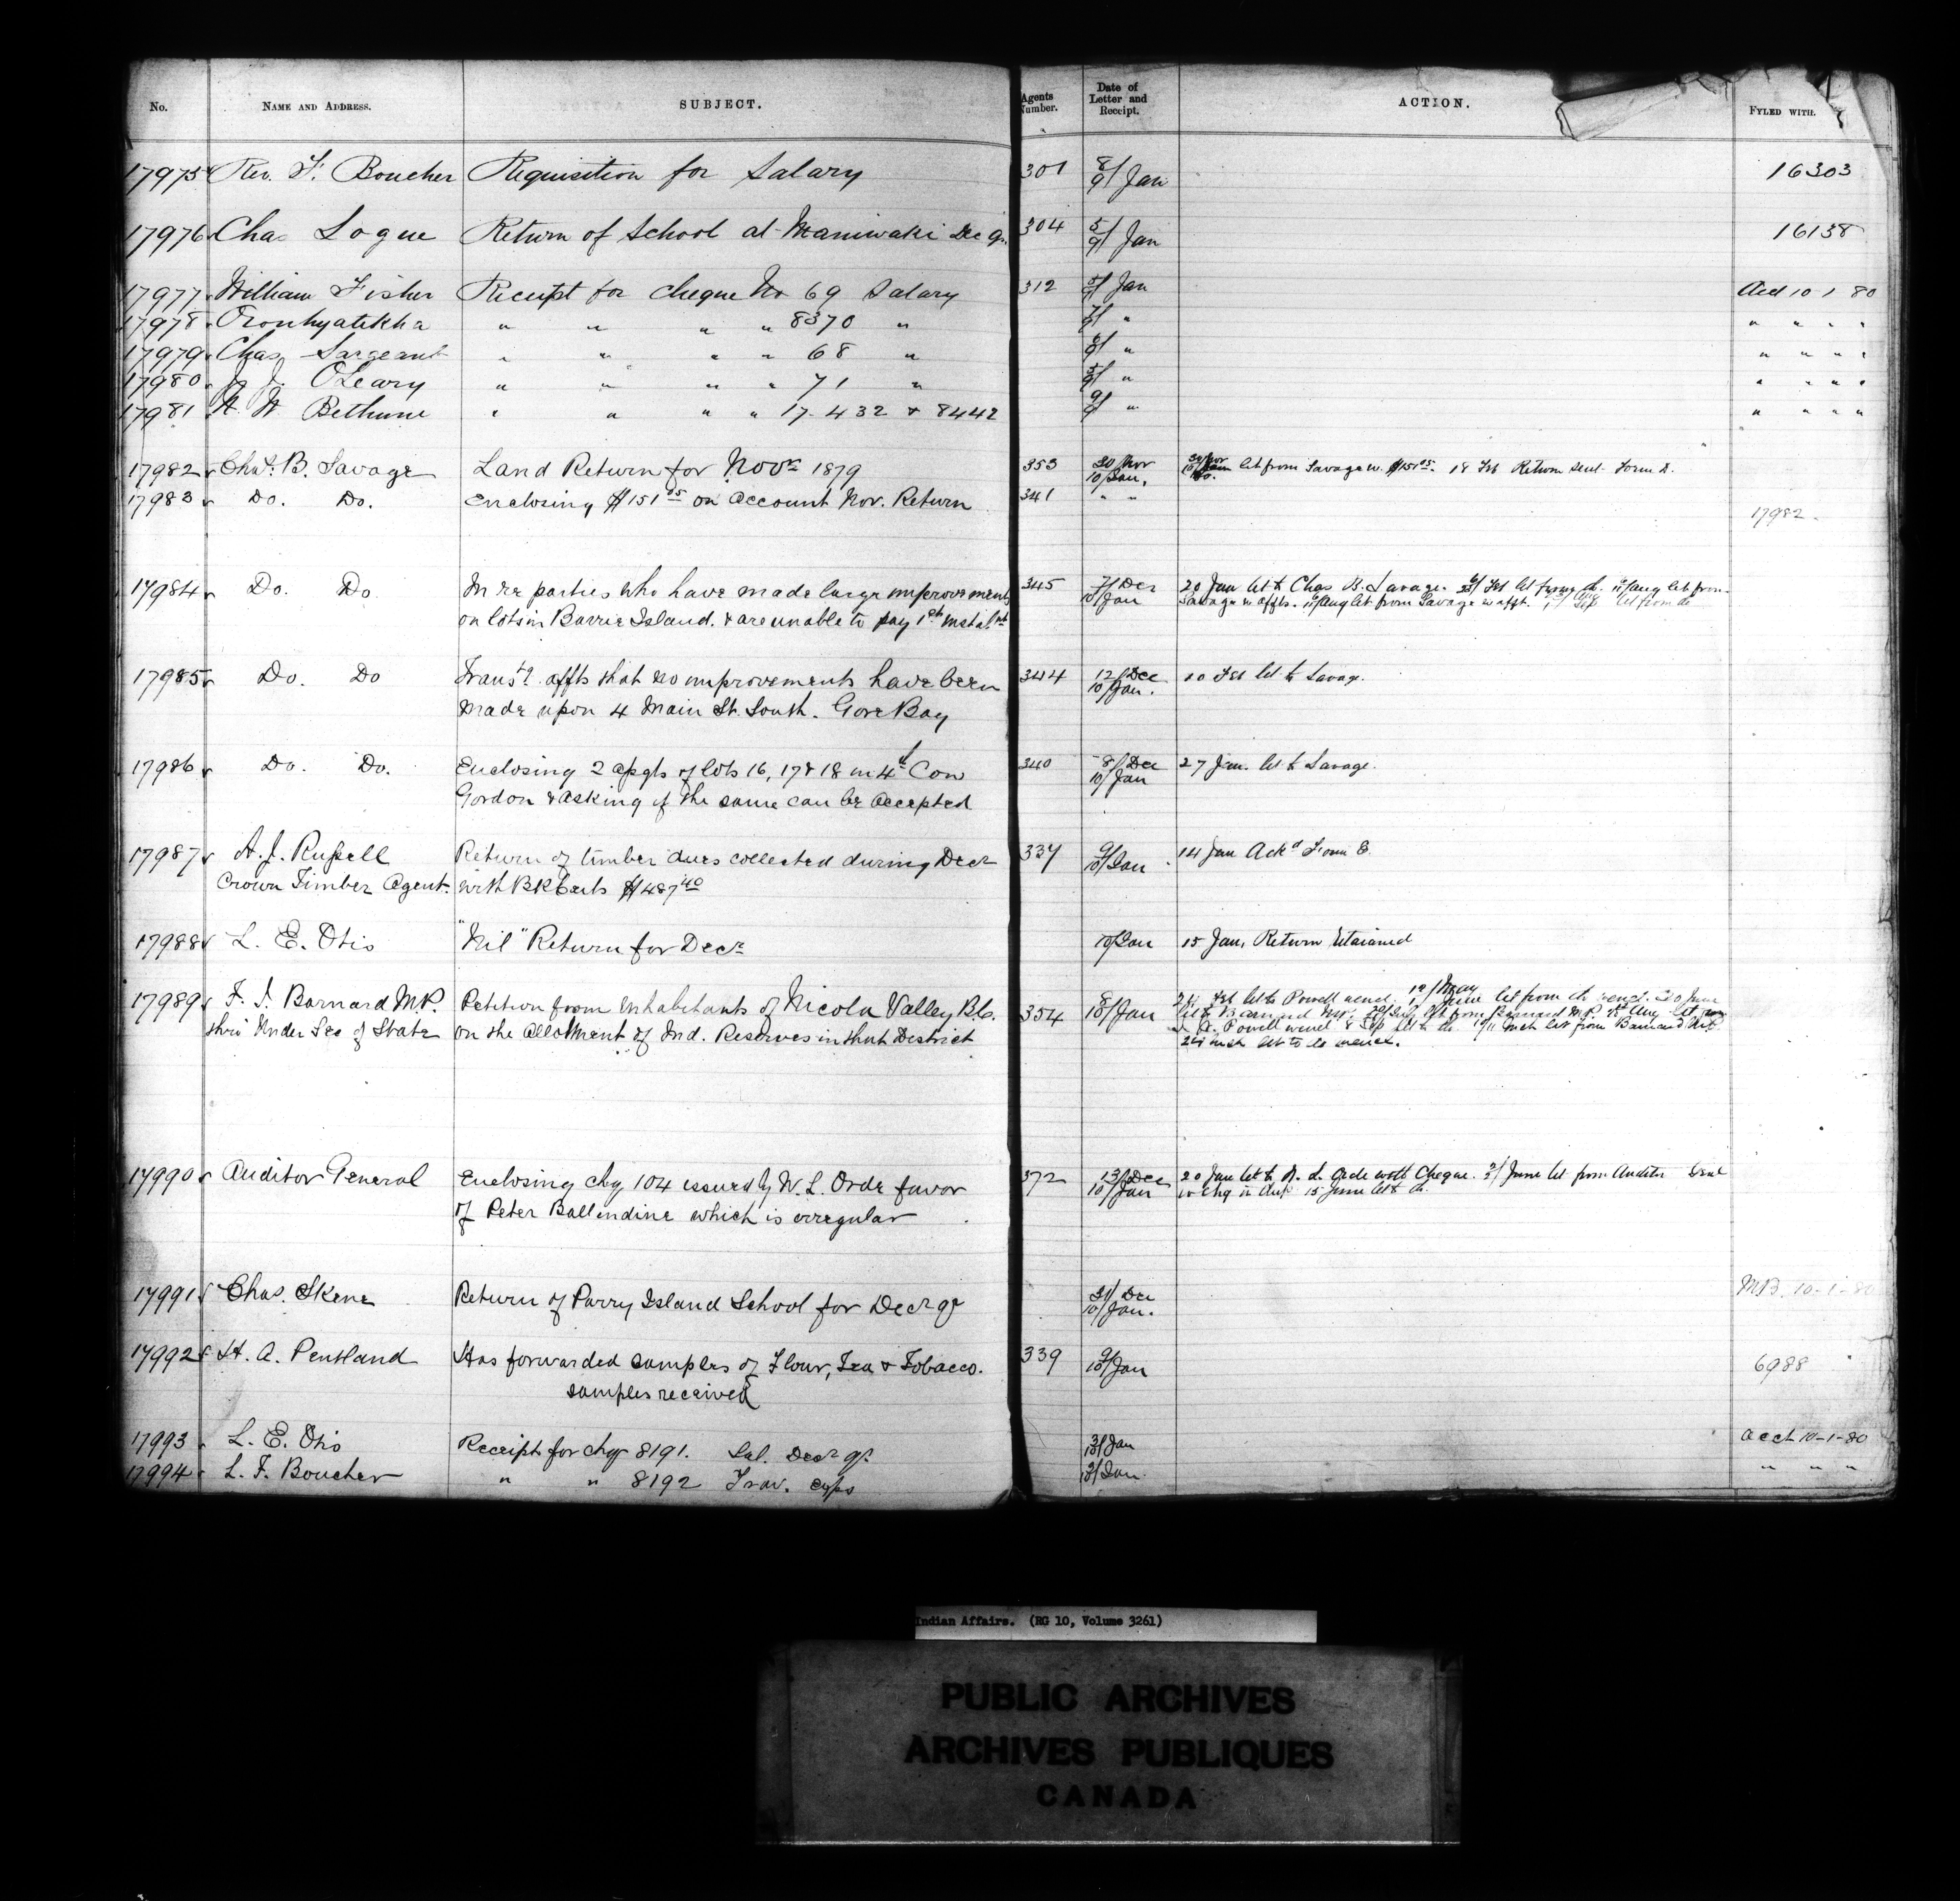 No. NAME AND ADDRESS. SUBJECT. Agents Number. Date of Letter and Receipt. ACTION. FYLED WITH.
17975 Rev. F. Boucher Requisition for Salary 301 8/9/ Jan 16303
17976 Chas Logue Return of School at Maniwaki Dec qr. 304 5/9/ Jan 16138
17977 William Fisher Receipt for Cheque No 69 Salary 312 Jan Acct 10 1 80
17978 Oronhyatekha " " " " 8370 " 7/9/ " " " " "
17979 Chas Sargeant " " " " 68 " " " " " "
17980 J. O'Leary " " " " 71 " " " " " "
17981 W Bethune " " " " 17. 432 & 8442 9/9/ " " " " "
17982 Chas. B. Savage Land Return for Novr 1879 353 30/Nov
10/Jan. let from Savage w. $151.05. 18 Feb Return sent Form D.
17983 Do. Do. Enclosing $151 05 on account Nov. Return 341 " "
17982.
17984 Do. Do. In re parties who have made large improvements 345 7/Dec 20 Jan let to Chas B. Savage. Feb let from do. Aug let from
on lots in Barrie Island. & are unable to pay 1st instalmt 10/Jan Savage w affts. Aug let from Savage w afft. Sep let from do
17985 Do. Do Transtg affts that no improvements have been 344 12/Dec 10 Feb let to Savage.
Made upon 4 Main St. South. Gore Bay 10/Jan.
17986 Do. Do. Enclosing 2 apgts of lots 16, 17 & 18 in 4th Con 340 8/Dec 27 Jan. let to Savage.
Gordon & asking if the same can be accepted 10/Jan
17987 A. J. Russell Return of timber dues collected during Decr 337 9/10/Jan 14 Jan Ackd Form E.
Crown Timber Agent. with BK Certs $487 40
17988 L. E. Otis "Nil" Return for Decr 10/Jan 15 Jan, Return retained
17989 F. J. Barnard M.P. Petition from inhabitants of Nicola Valley B.C. 354 8/10/Jan Feb let to Powell w encl. 12/May June let from do w encl. 30 June
thro' Under Sec of State on the allotment of Ind. Reserves in that District let to Barnard MP. let from Barnard M.P. Aug let from
Powell w encl Sep let to do. let from Barnard M.P.
let to do w encl.
17990 Auditor General Enclosing chq 104 issued by W. L. Orde favor 372 13/Dec 20 Jan let to W. L. Orde with Cheque. June let from Auditor Genl
of Peter Ballendine which is irregular 10/Jan w chq in dup 15 June let to do.
17991 Chas. Skene Return of Parry Island School for Decr qr 31/Dec M.B. 10-1-80
10/Jan.
17992 H. A. Pentland Has forwarded samples of Flour, Tea & Tobacco. 339 9/10/Jan 6988
samples received
17993 L. E. Otis Receipt for chq 8191. Sal. Decr qr. Jan acct 10-1-80
17994 L. F. Boucher " " 8192 Trav. exps Jan " " "
Indian Affairs. (RG 10, Volume 3261)
PUBLIC ARCHIVES
ARCHIVES PUBLIQUES
CANADA